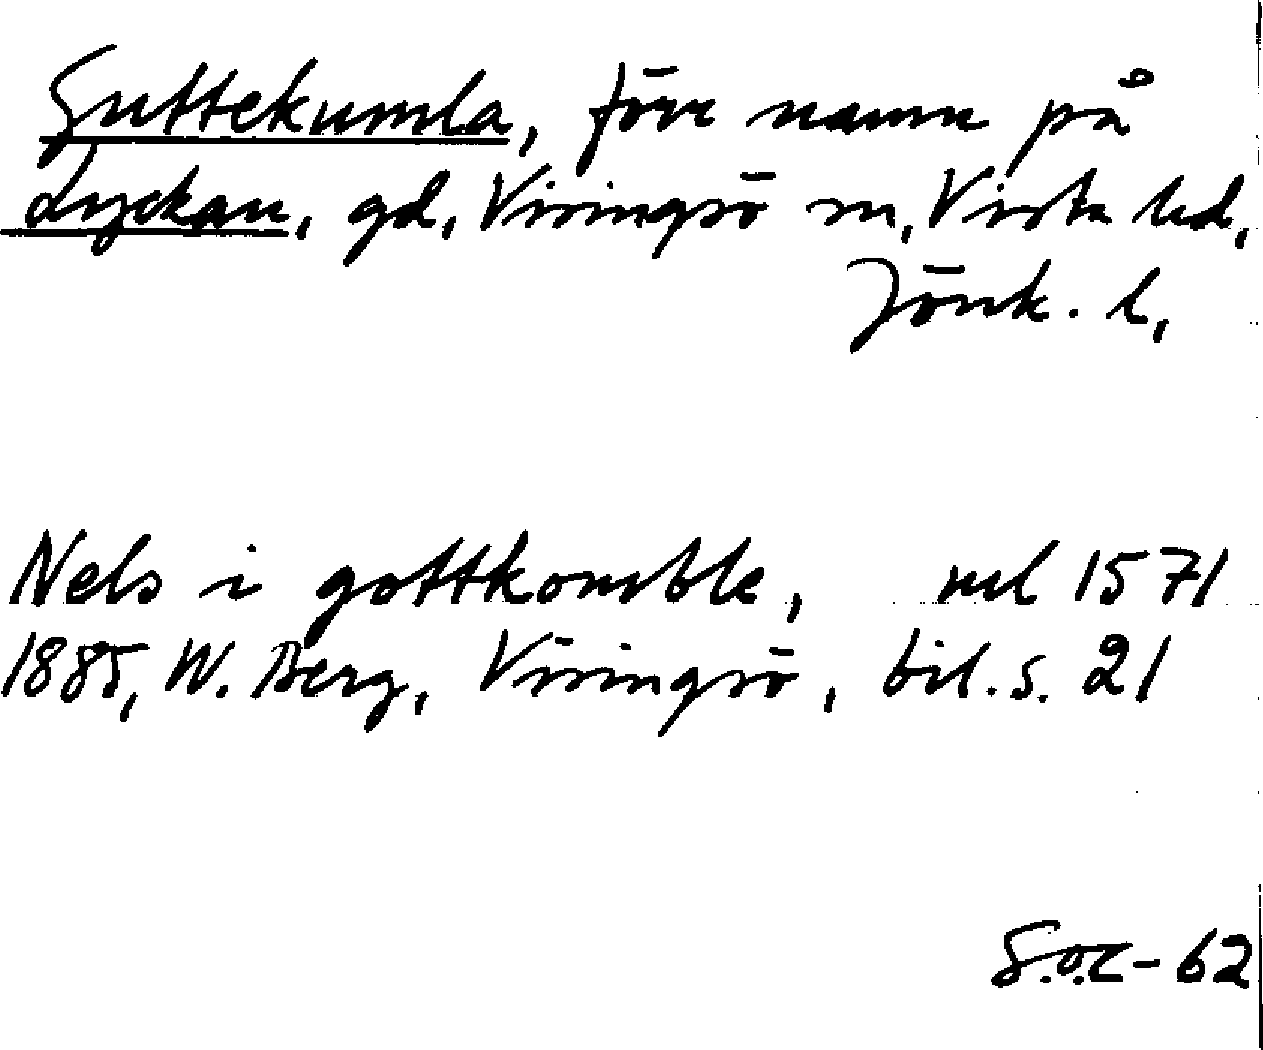 Guttekumla, förr namn på
Lyckan, gd, Visingsö sn, Vista hd,
Jönk. l,
Nels i gottkomble, ml 1571
1885, W. Berg, Visingsö, bil. s. 21
S.O.C-62